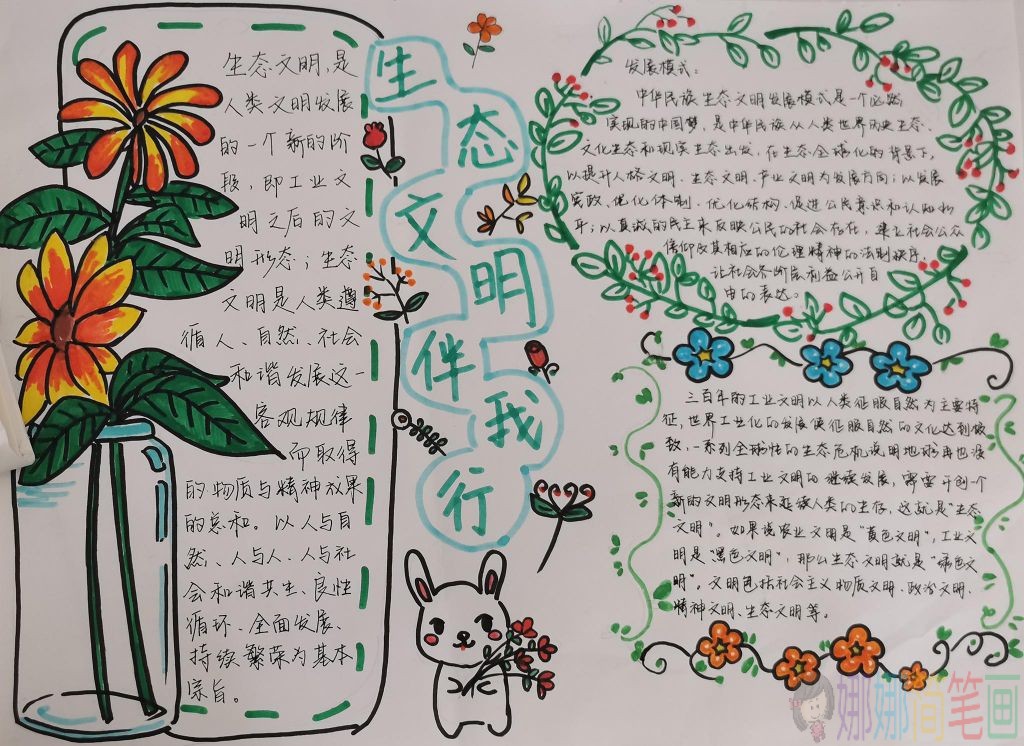 生态文明伴我行
生态文明,是
人类文明发展
的一个新的阶
段,即工业文
明之后的文
明形态;生态
文明是人类遵
循人、自然、社会
和谐发展这一
客观规律
而取得
的物质与精神成果
的总和。以人与自
然、人与人、人与社
会和谐共生、良性
循环、全面发展、
持续繁荣为基本
宗旨。
发展模式:
中华民族生态文明发展模式是一个必然
实现的中国梦,是中华民族从人类世界历史生态、
文化生态和现实生态出发,在生态全球化的背景下,
以提升人格文明、生态文明、产业文明为发展方向;以发展
宪政、优化体制、优化结构、促进公民意识和认知水
平;以真诚的民主来反映公民的社会存在,建立社会公众
信仰及其相应的伦理精神的法制秩序,
让社会各阶层利益公开自
由的表达。
三百年的工业文明以人类征服自然为主要特
征,世界工业化的发展使征服自然的文化达到极
致,一系列全球性的生态危机说明地球再也没
有能力支持工业文明的继续发展,需要开创一个
新的文明形态来延续人类的生存,这就是“生态
文明”。如果说农业文明是“黄色文明”,工业文
明是“黑色文明”,那么生态文明就是“绿色文
明”。文明包括社会主义物质文明、政治文明、
精神文明、生态文明等。
娜娜简笔画